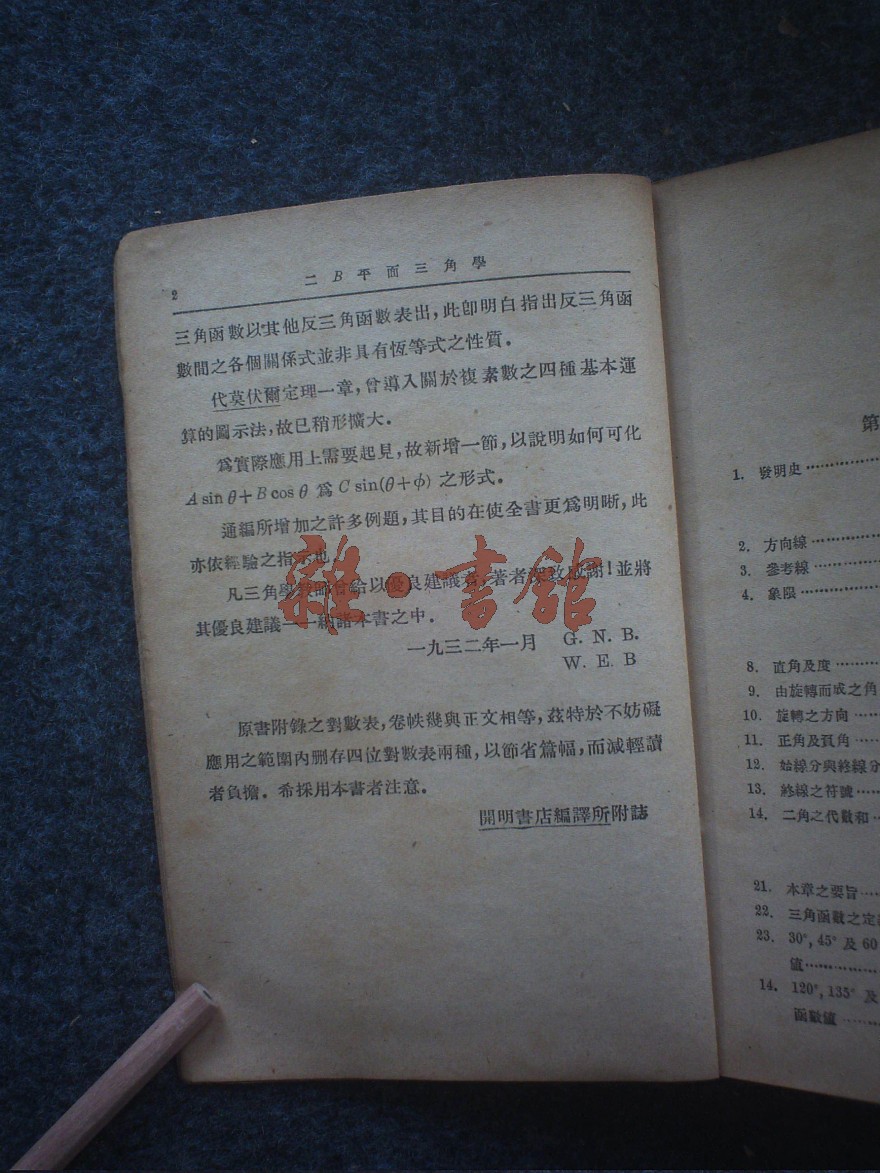 2
二B平面三角學
三角函數以其他反三角函數表出，此卽明白指出反三角函
數間之各個關係式並非具有恆等式之性質。
代莫伏爾定理一章，曾導入關於複素數之四種基本運
算的圖示法，故已稍形擴大。
爲實際應用上需要起見，故新增一節，以說明如何可化
A sin θ+B cos θ 爲 C sin(θ+ϕ) 之形式。
通編所增加之許多例題，其目的在使全書更爲明晰，此
亦依經驗之指示也。
凡三角學教師曾給以優良建議者，著者深致感謝！並將
其優良建議一一納諸本書之中。
一九三二年一月 G. N. B.
W. E. B
原書附錄之對數表，卷帙幾與正文相等，茲特於不妨礙
應用之範圍內刪存四位對數表兩種，以節省篇幅，而減輕讀
者負擔。希採用本書者注意。
開明書店編譯所附誌
雜·書館
第
1. 發明史
2. 方向線
3. 參考線
4. 象限
8. 直角及度
9. 由旋轉而成之角
10. 旋轉之方向
11. 正角及負角
12. 始線分與終線分
13. 終線之符號
14. 二角之代數和
21. 本章之要旨
22. 三角函數之定
23. 30°, 45° 及 60
値
14. 120°, 135° 及
函數値